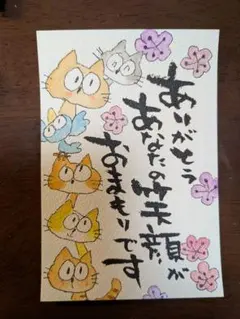 ありがとう
あなたの笑顔が
おまもりです